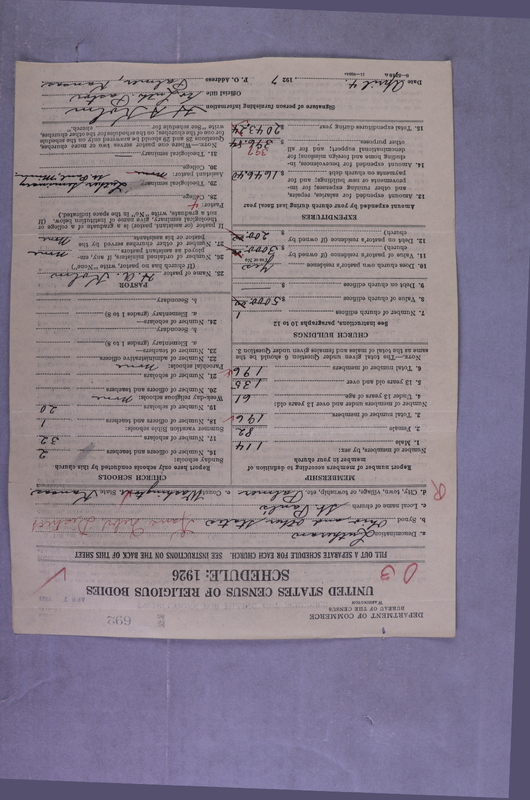 DEPARTMENT OF COMMERCE
BUREAU OF THE CENSUS
WASHINGTON
692
UNITED STATES CENSUS OF RELIGIOUS BODIES
SCHEDULE: 1926
FILL OUT SEPARATE SCHEDULE FOR EACH CHURCH. SEE INSTRUCTIONS ON THE BACK OF THIS SHEET
a. Denomination Lutheran
b. Synod Ohio and other States Kans Nebr District
c. Local name of church St. Paul's
d. City, town, village, or township, etc. Palmer e. County Washington f. State Kansas
MEMBERSHIP
Report number of members according to definition of member in your church
Number of members, by sex:
1. Male 114
2. Female 82
3. Total number of members. 196
Number of members under and over 13 years old:
4. Under 13 years of age. 61
5. 13 years old and over 135
6. Total number of members 196
NOTE.—The total given under Question 6 should be the same as the total of males and females given under Question 3.
CHURCH BUILDINGS
See instructions, paragraphs 10 to 12
7. Number of church edifices 1
8. Value of church edifices $ 5000.00
9. Debt on church edifices $
10. Does church own pastor's residence yes
(Yes or No)
11. Value of pastor's residence (if owned by church) $ 3000.00
12. Debt on pastor's residence (if owned by church) $ 200.00
EXPENDITURES
Amount expended by your church during last fiscal year
13. Amount expended for salaries, repairs, and other running expenses; for improvements or new building; and for payments on church debt $ 1646.40
14. Amount expended for benevolences, including home and foreign missions; for denominational support; and for all other purposes $ 396.84
15. Total expenditures during year $ 2043.24
CHURCH SCHOOLS
Report here only schools conducted by this church
Sunday schools:
16. Number of officers and teachers 2
17. Number of scholars 32
Summer vacation Bible schools:
18. Number of officers and teachers 1
19. Number of scholars 20
Week-day religious schools:
20. Number of officers and teachers None
21. Number of scholars
Parochial schools: None
22. Number of administrative officers.
23. Number of teachers—
a. Elementary (grades 1 to 8)
b. Secondary
24. Number of scholars—
a. Elementary (grades 1 to 8)
b. Secondary
PASTOR
25. Name of pastor H. A. Kolm
(If church has no pastor, write "None")
26. Number of ordained assistants, if any, employed as assistant pastors None
27. Number of other churches served by the pastor or his assistants None
If pastor (or assistant pastor) is a graduate of a college or theological seminary, give name of institution below. (If not a graduate, write "No" in the space indicated.)
Pastor:
28. College.
29. Theological seminary. Luther Seminary St. Paul Minn
Assistant pastor:
30. College.
31. Theological seminary.
NOTE.—Where one pastor serves two or more churches, Questions 28 and 29 should be answered only on the schedule for one of the churches; on the schedules for the other churches, write "See schedule for church."
Signature of person furnishing information H. A. Kolm
Official title Ev. Luth. Pastor
Date April 4, 1927 P. O. Address Palmer, Kansas